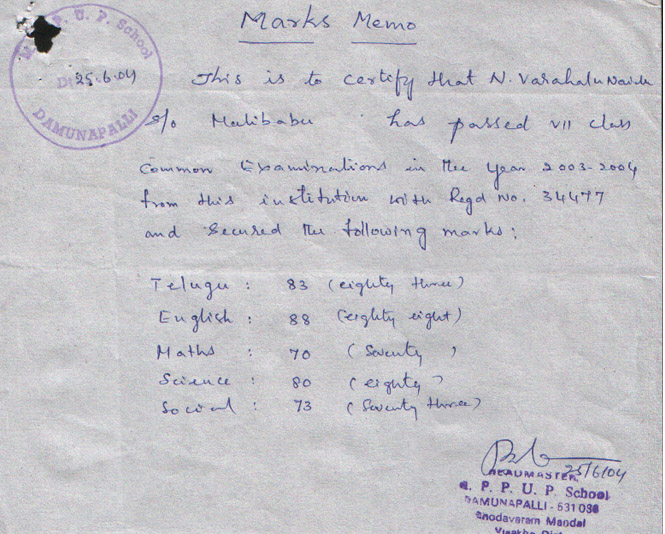 Marks Memo
M. P. U. P. School
25.6.04
DAMUNAPALLI
This is to certify that N. Varahalu Naidu
s/o Mulibabu has passed VII class
Common Examinations in the year 2003-2004
from this institution with Regd No. 34477
and secured the following marks:
Telugu : 83 (eighty three)
English : 88 (eighty eight)
Maths : 70 (Seventy )
Science : 80 (eighty )
Social : 73 (Seventy three)
25/6/04
HEADMASTER
P. P. U. P. School
DAMUNAPALLI - 531036
Visakha